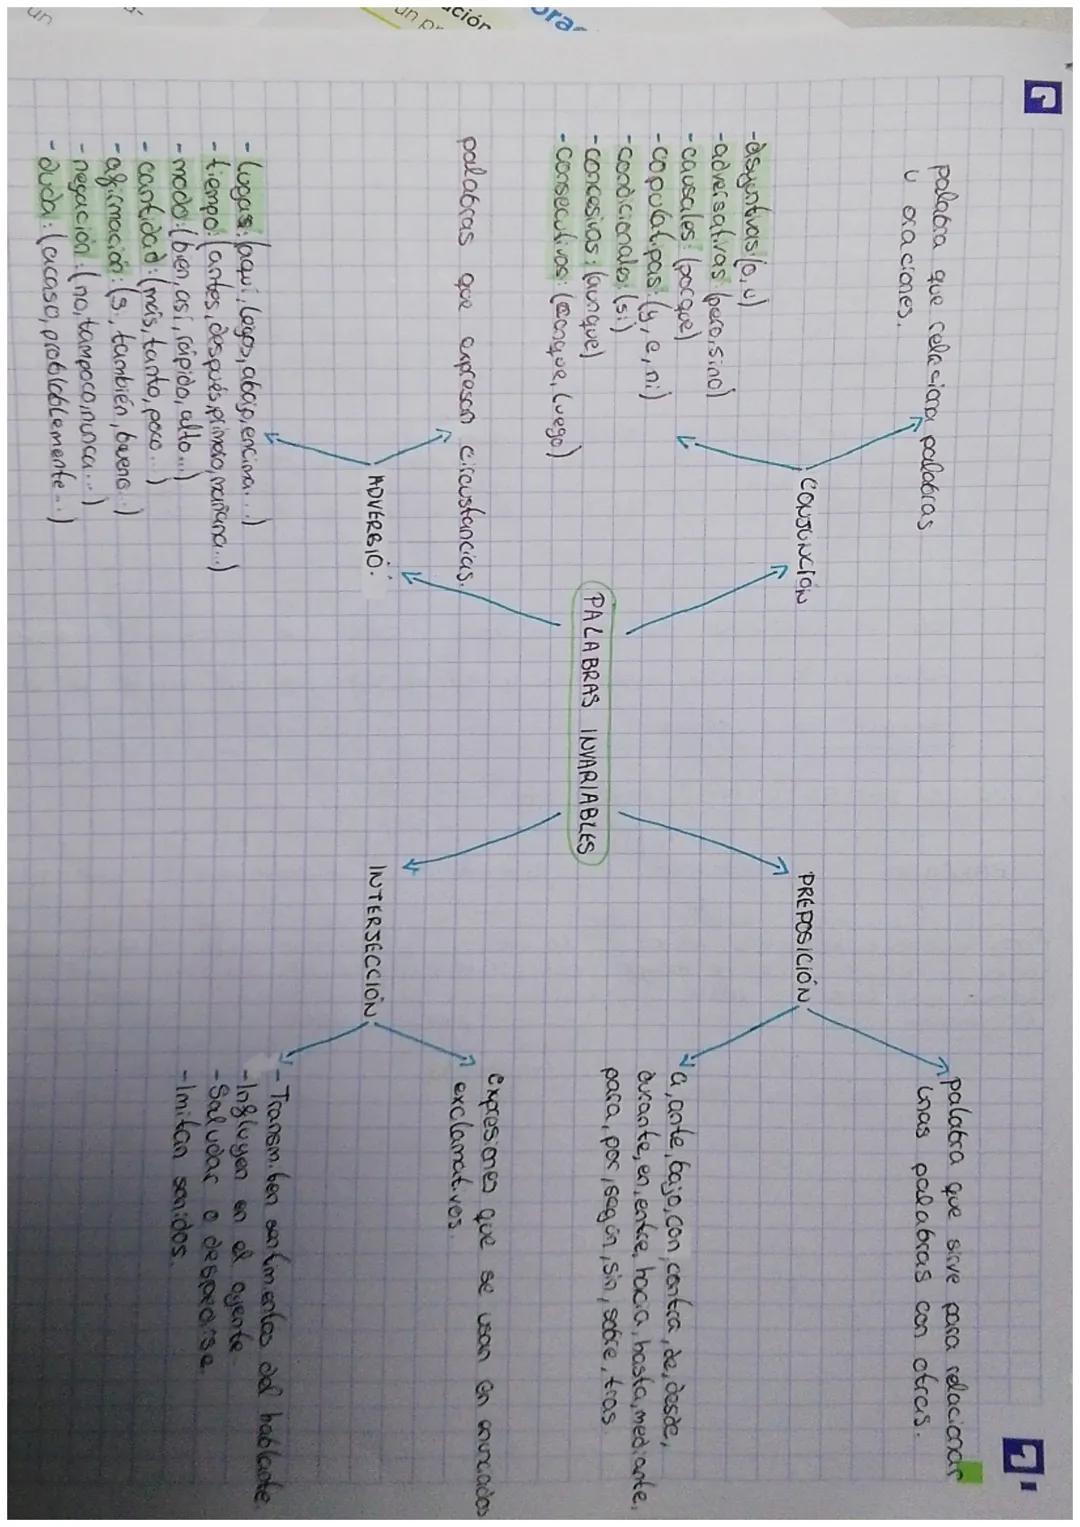 palabra que relaciona palabras
u oraciones.
CONJUNCIÓN
-disyuntivas:(o,u)
-adversativas:(pero,sino)
-causales:(porque)
-copulatipas:(y,e,ni)
-condicionales:(si)
-concesivas:(aunque)
-consecutivas:(conque, luego)
PALABRAS INVARIABLES
PREPOSICIÓN
palabra que sirve para relacionar
unas palabras con otras.
a,ante,bajo,con,contra,de,desde,
durante,en,entre,hacia,hasta,mediante,
para,por,según,sin,sobre,tras
palabras que expresan circustancias.
ADVERBIO:
-lugar:(aquí, lejos,abajo,encima...)
-tiempo:(antes,después,primero,mañana...)
-modo:(bien,así,rápido,alto...)
-cantidad:(más,tanto,poco...)
-afirmación:(si, también,bueno...)
-negación:(no,tampoco,nunca...)
-duda:(acaso,problablemente...)
INTERJECCIÓN
expresiones que se usan en enunciados
exclamativos.
-Transmiten sentimientos del hablante.
-Influyen en el oyente.
-Saludar o despedirse.
-Imitan sonidos.
ción
un